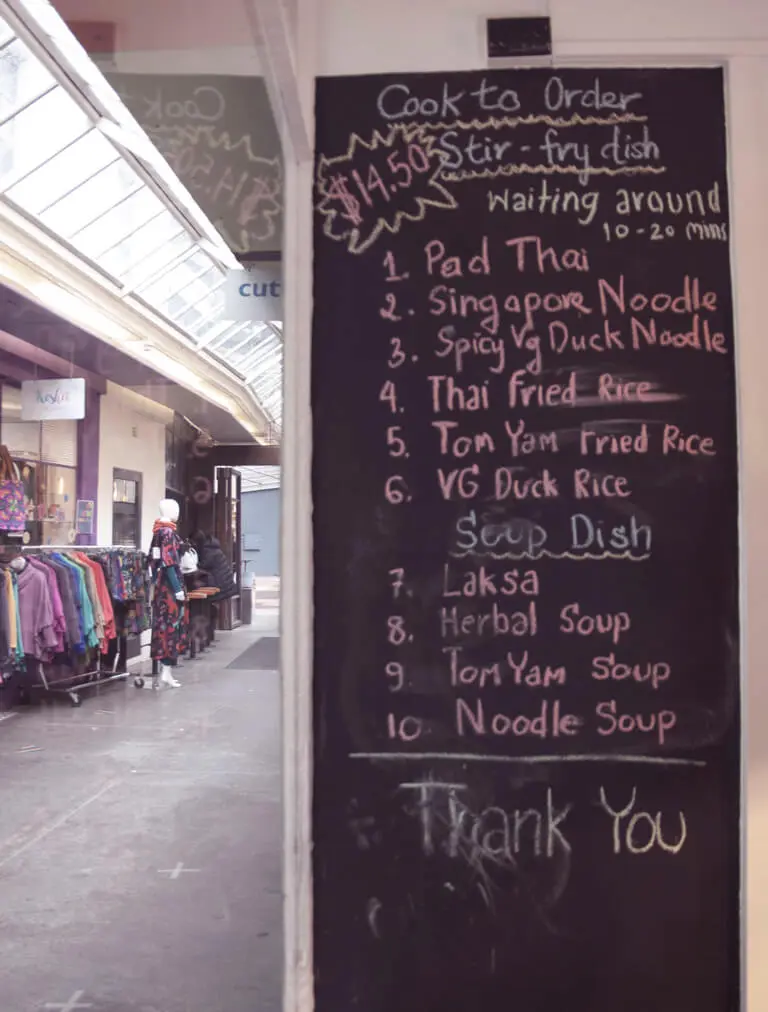 Cook to Order
$14.50
Stir-fry dish
Waiting around
10-20 mins
1. Pad Thai
2. Singapore Noodle
3. Spicy Vg Duck Noodle
4. Thai Fried Rice
5. Tom Yam Fried Rice
6. VG Duck Rice
Soup Dish
7. Laksa
8. Herbal Soup
9. Tom Yam Soup
10 Noodle Soup
Thank You
cut